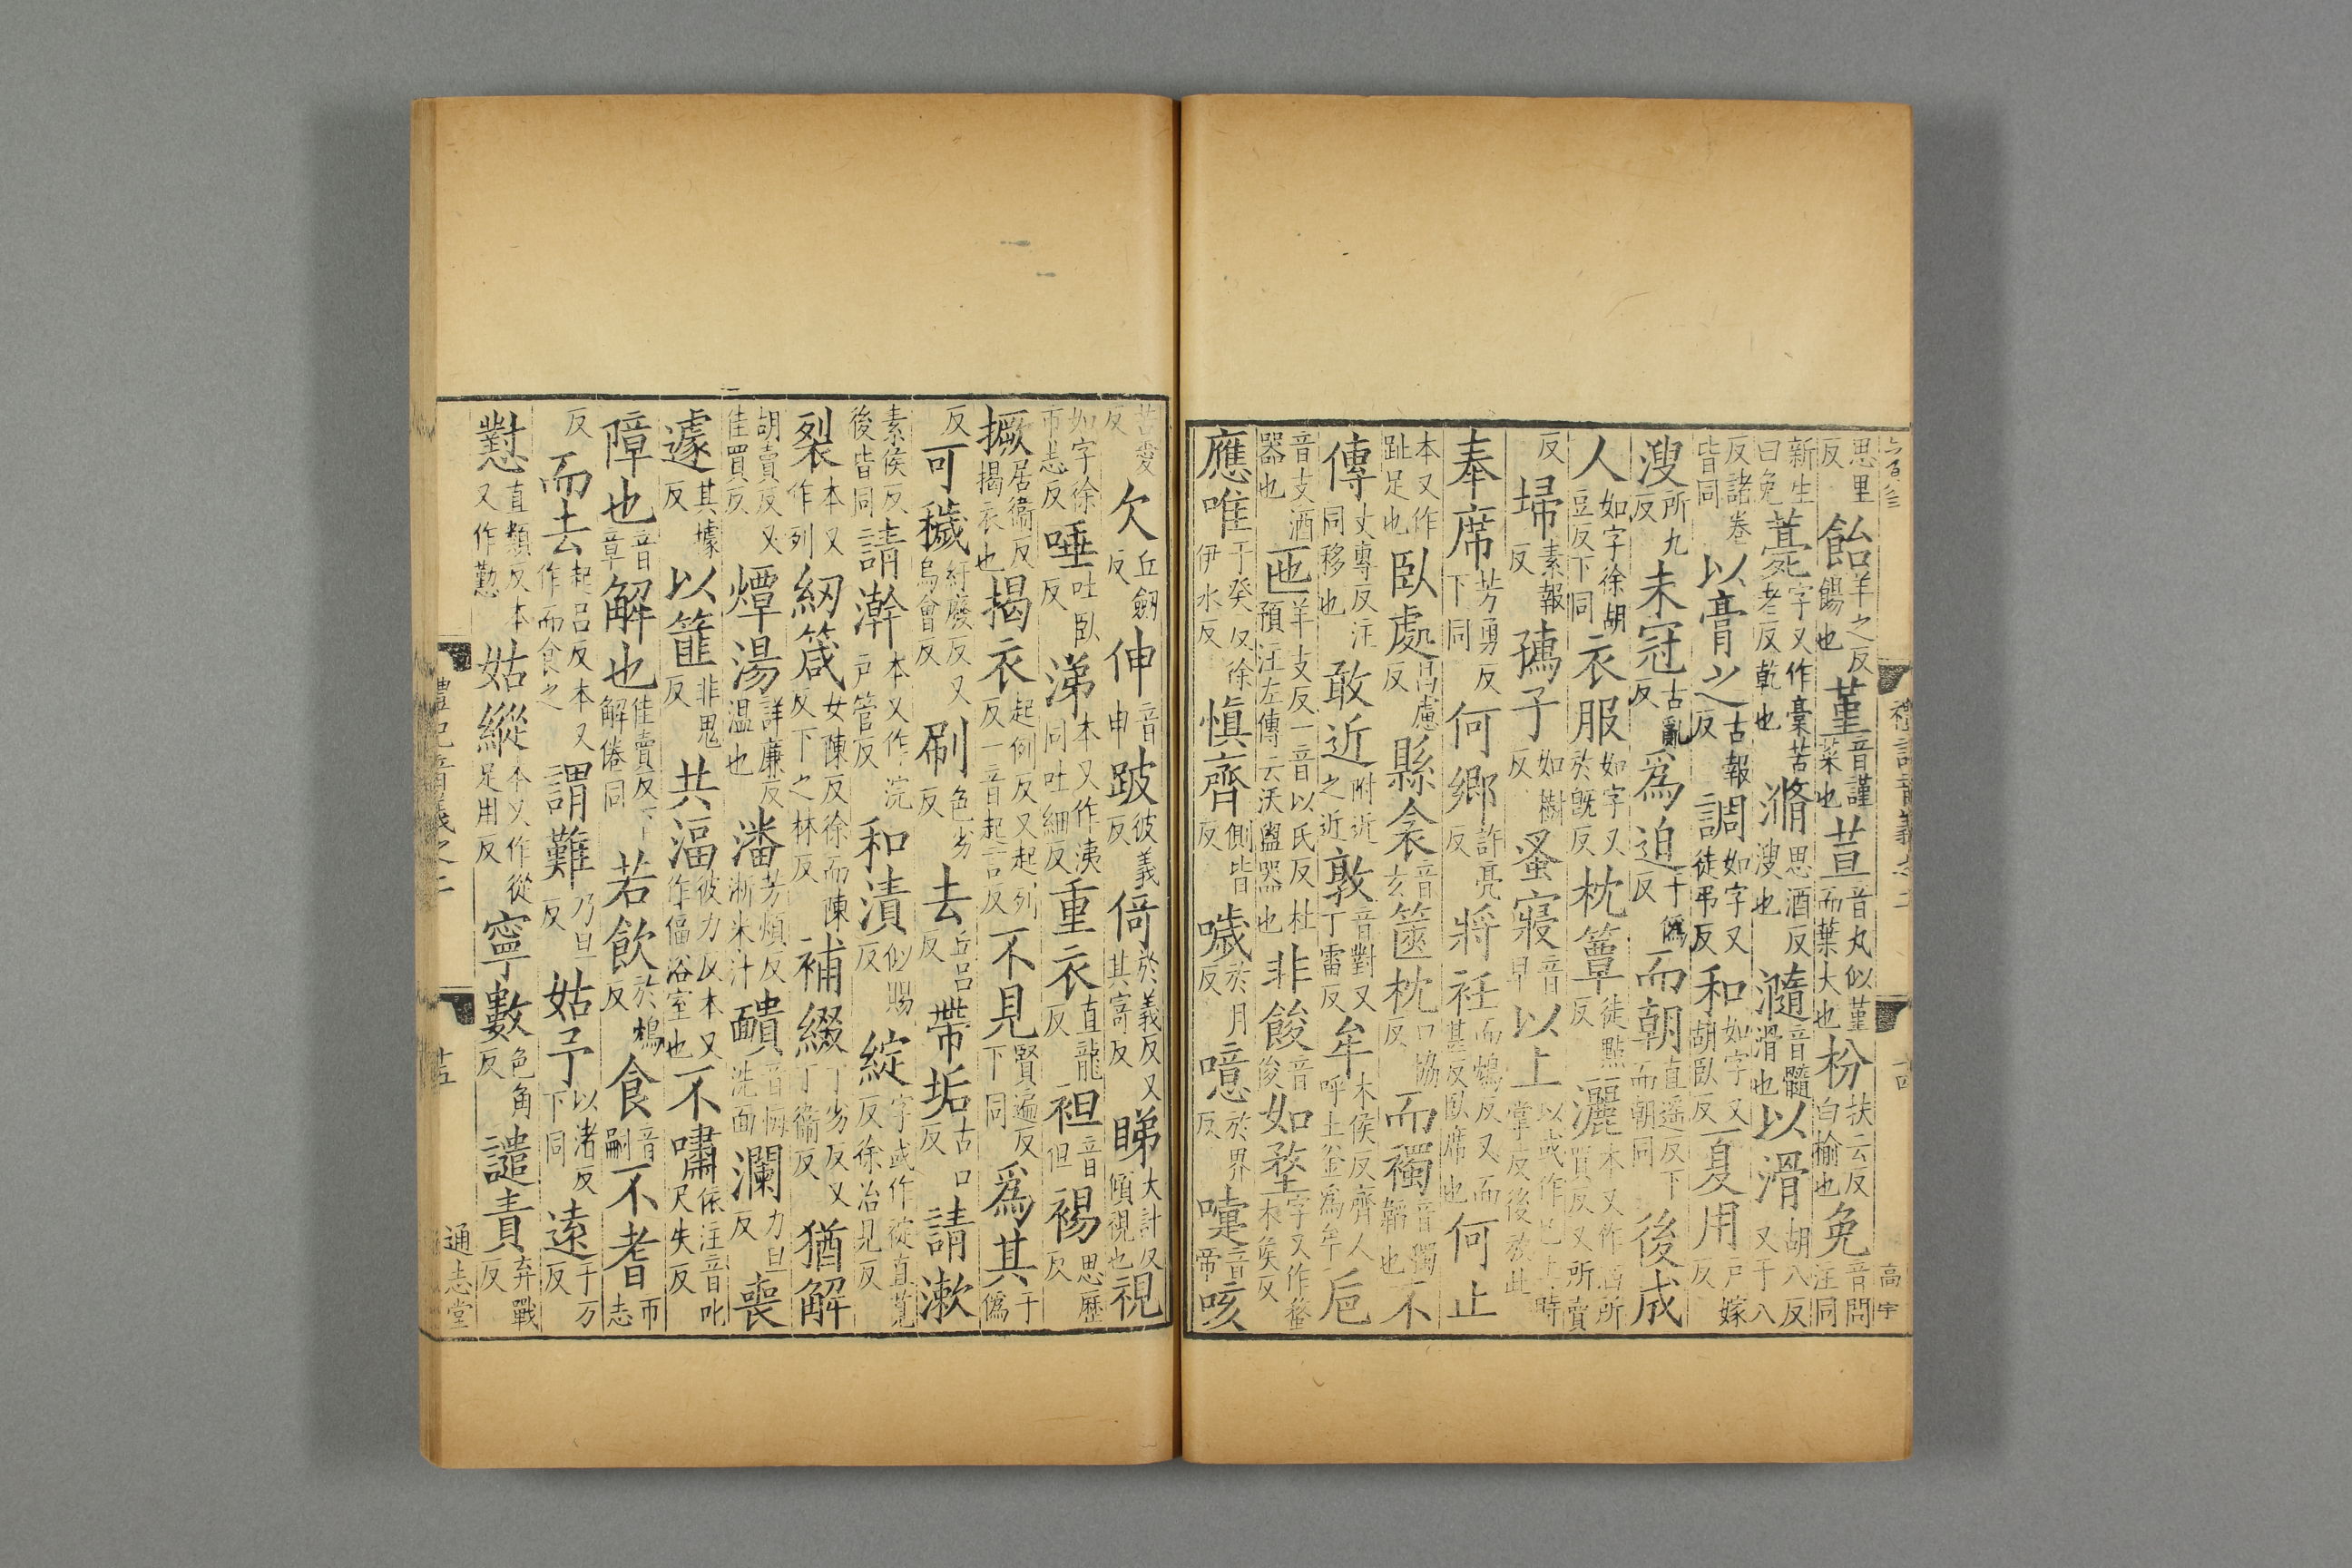 思里反飴羊之反餳也堇音謹菜也荁音丸似堇而葉大也枌扶云反白榆也免音問注同
新生曰免薧字又作槀苦老反乾也滫思酒反溲也瀡音髓滑也以滑胡八反又于八
反諸卷皆同以膏之古報反調如字又徒弔反和如字又胡臥反夏用戶嫁反
溲所九反未冠古亂反爲迫于僞反而朝直遥反下而朝同後成
人如字徐胡豆反下同衣服如字又於既反枕簟徒點反灑本又作洒所買反又所賣
反埽素報反孺子如樹反蚤寢音早以上以或作已上時掌反後放此
奉席芳勇反下同何鄉許亮反將衽而鴆反又而甚反臥席也何止
本又作趾足也臥處昌慮反縣衾音玄篋枕口協反而襡音獨韜也不
傳丈專反注同移也敢近附近之近敦音對又丁雷反牟木侯反齊人呼土釜爲牟巵
音支酒器也匜羊支反一音以氏反杜預注左傳云沃盥器也非餕音俊如堥字又作鍪木侯反
應唯于癸反徐伊水反慎齊側皆反噦於月反噫於界反嚏音帝咳
禮記音義之二 十四 高宇
苦愛反欠丘劒反伸音申跛彼義反倚於義反又其寄反睇大計反傾視也視
如字徐市志反唾吐臥反洟本又作涕同吐細反重衣直龍反袒音但裼思歷反
撅居衞反揭衣也揭衣起例反又起列反一音起言反不見賢遍反下同爲其于僞
反可穢紆廢反又烏會反刷色劣反去丘呂反帶垢古口反請漱
素侯反後皆同請澣本又作浣戶管反和漬似賜反綻字或作䘺直莧反徐治見反
裂本又作列紉箴女陳反徐而陳反下之林反補綴丁劣反又丁衞反猶解
胡賣反又佳買反燂湯詳廉反温也潘芳煩反淅米汁靧音悔洗面瀾力旦反喪
遽其據反以篚非鬼反共湢彼力反本又作偪浴室也不嘯依注音叱尺失反
障也音章解也佳賣反下解倦同若飲於鴆反食音嗣不耆市志
反而去起呂反本又作而食之謂難乃旦反姑予以渚反下同遠于万反
懟直類反本又作懃姑縱本又作從足用反寧數色角反譴責弃戰反
禮記音義之二 十五 通志堂